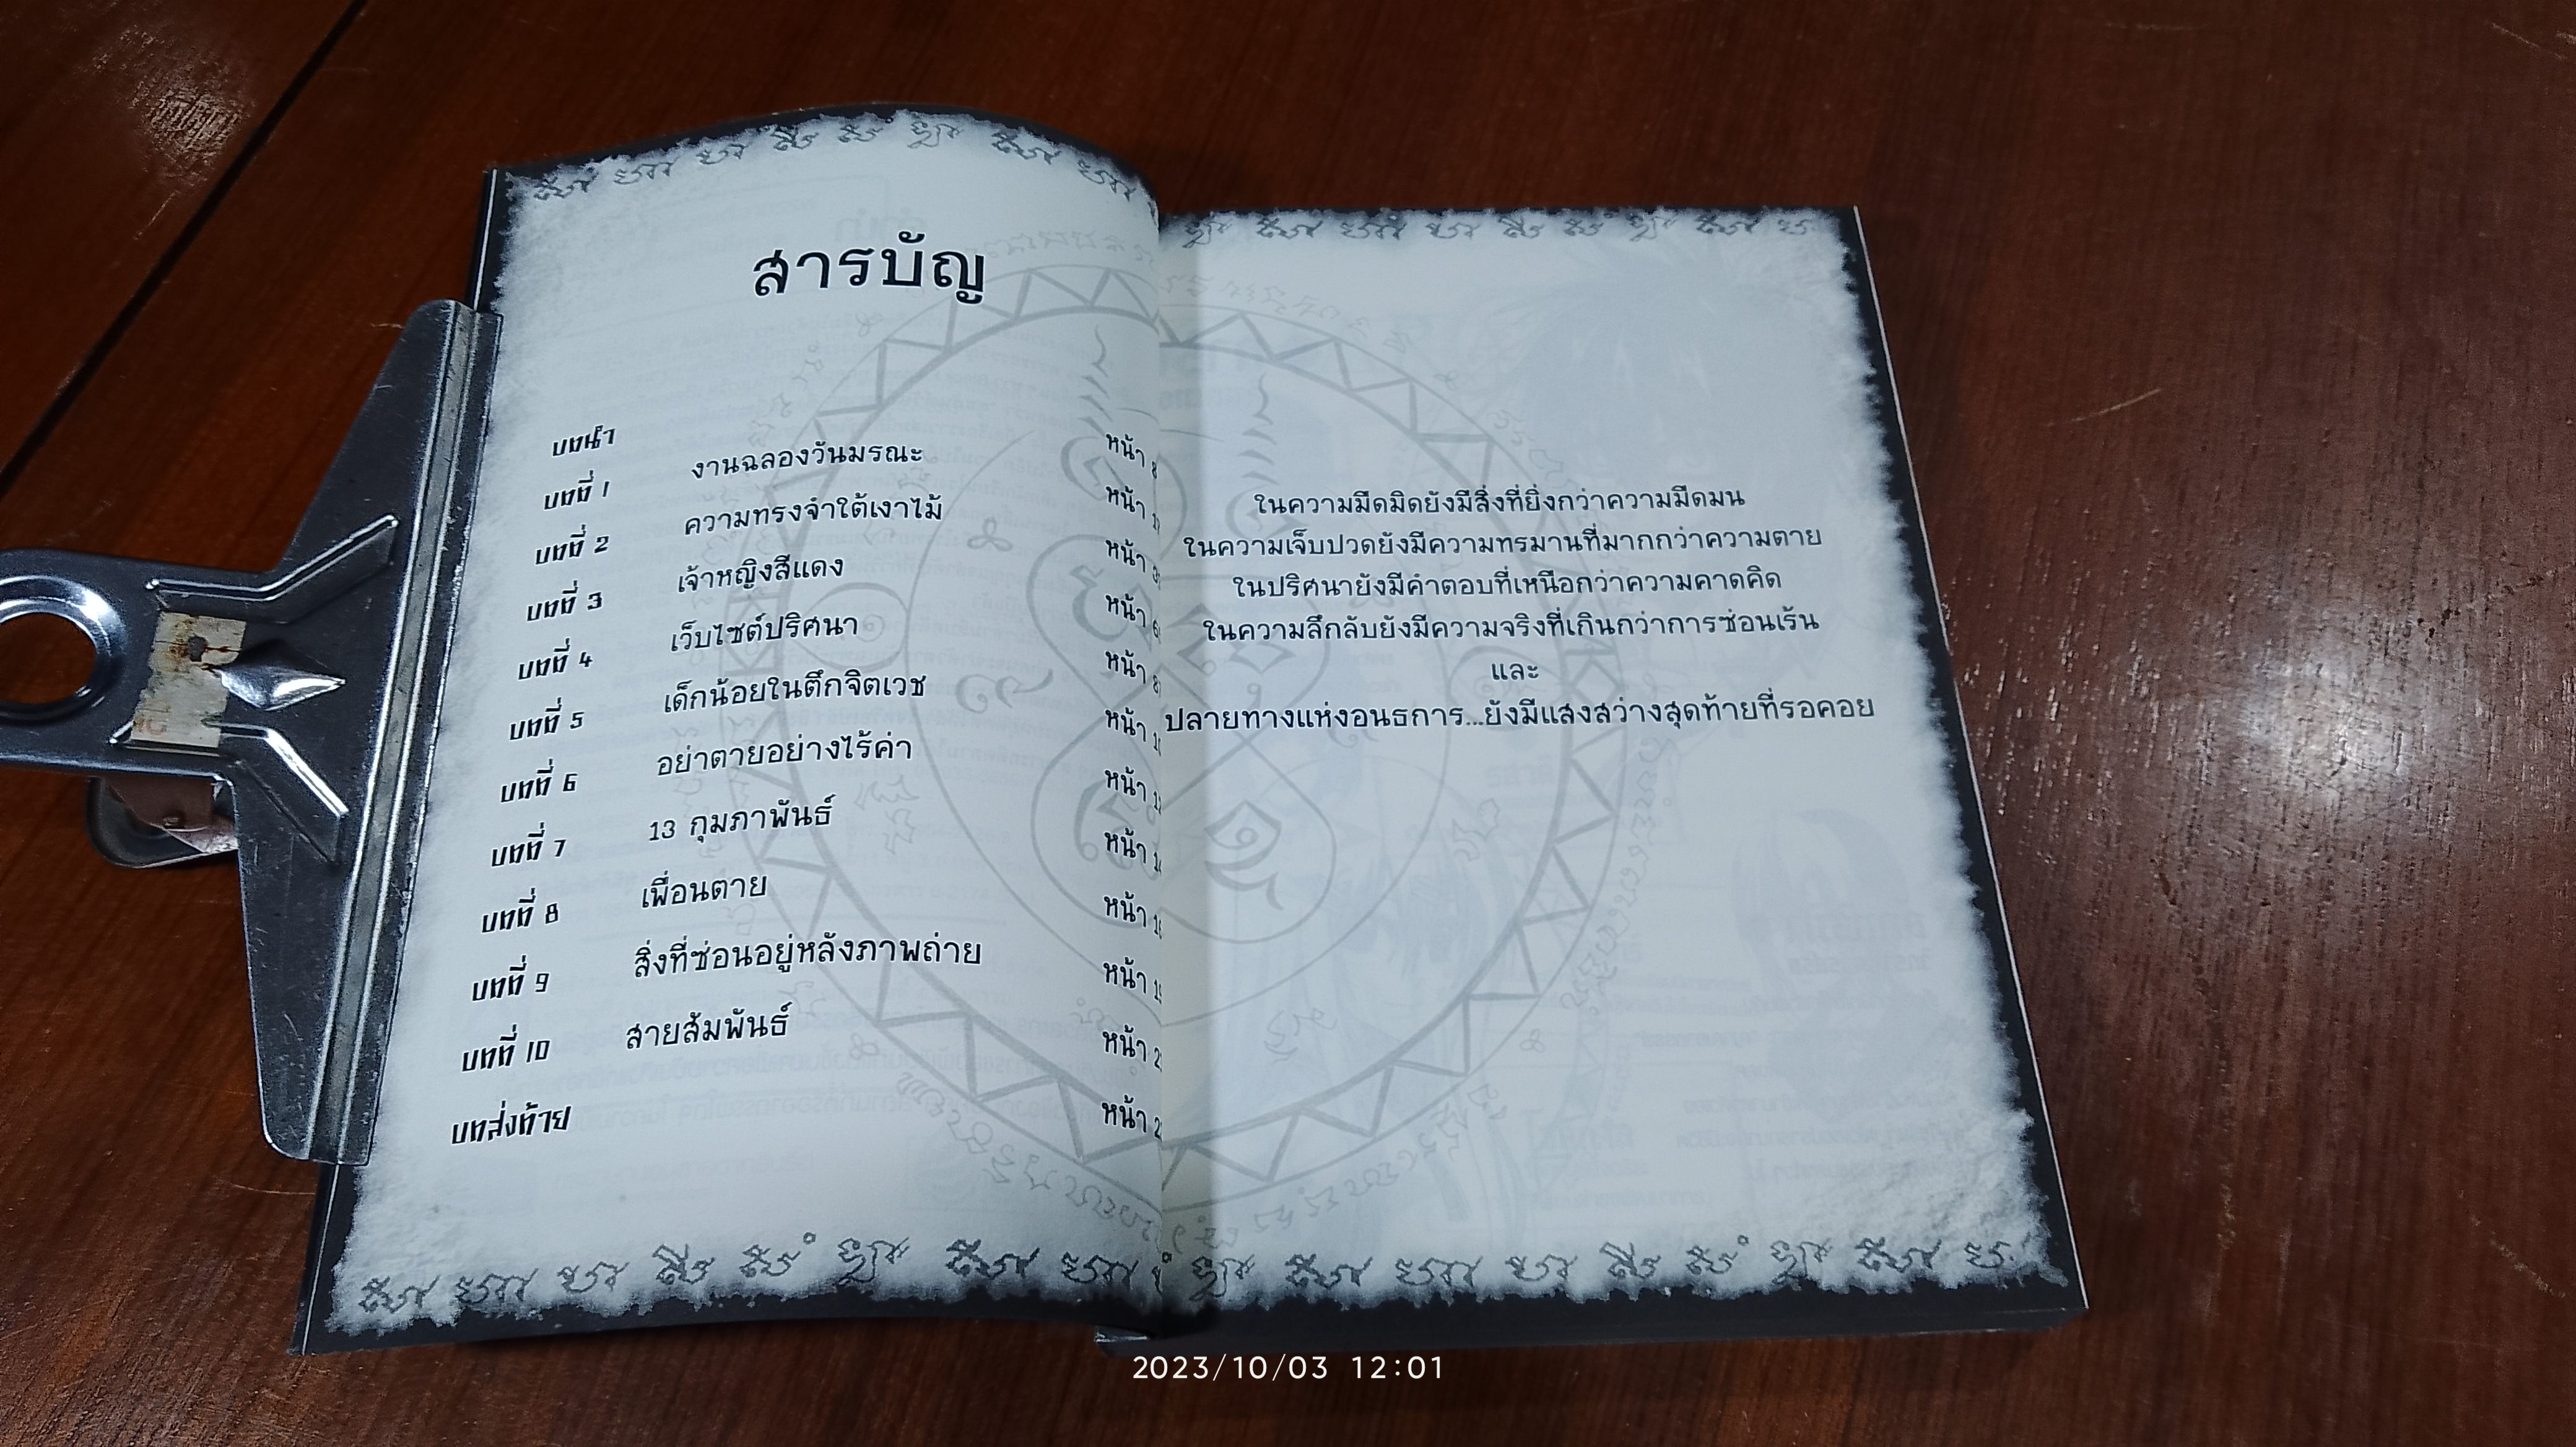 สารบัญ
บทนำ หน้า 8
บทที่ 1 งานฉลองวันมรณะ หน้า
บทที่ 2 ความทรงจำใต้เงาไม้ หน้า
บทที่ 3 เจ้าหญิงสีแดง หน้า
บทที่ 4 เว็บไซต์ปริศนา หน้า
บทที่ 5 เด็กน้อยในตึกจิตเวช หน้า
บทที่ 6 อย่าตายอย่างไร้ค่า หน้า
บทที่ 7 13 กุมภาพันธ์ หน้า
บทที่ 8 เพื่อนตาย หน้า
บทที่ 9 สิ่งที่ซ่อนอยู่หลังภาพถ่าย หน้า
บทที่ 10 สายสัมพันธ์ หน้า
บทส่งท้าย หน้า
ในความมืดมิดยังมีสิ่งที่ยิ่งกว่าความมืดมน
ในความเจ็บปวดยังมีความทรมานที่มากกว่าความตาย
ในปริศนายังมีคำตอบที่เหนือกว่าความคาดคิด
ในความลึกลับยังมีความจริงที่เกินกว่าการซ่อนเร้น
และ
ปลายทางแห่งอนธการ...ยังมีแสงสว่างสุดท้ายที่รอคอย
2023/10/03 12:01